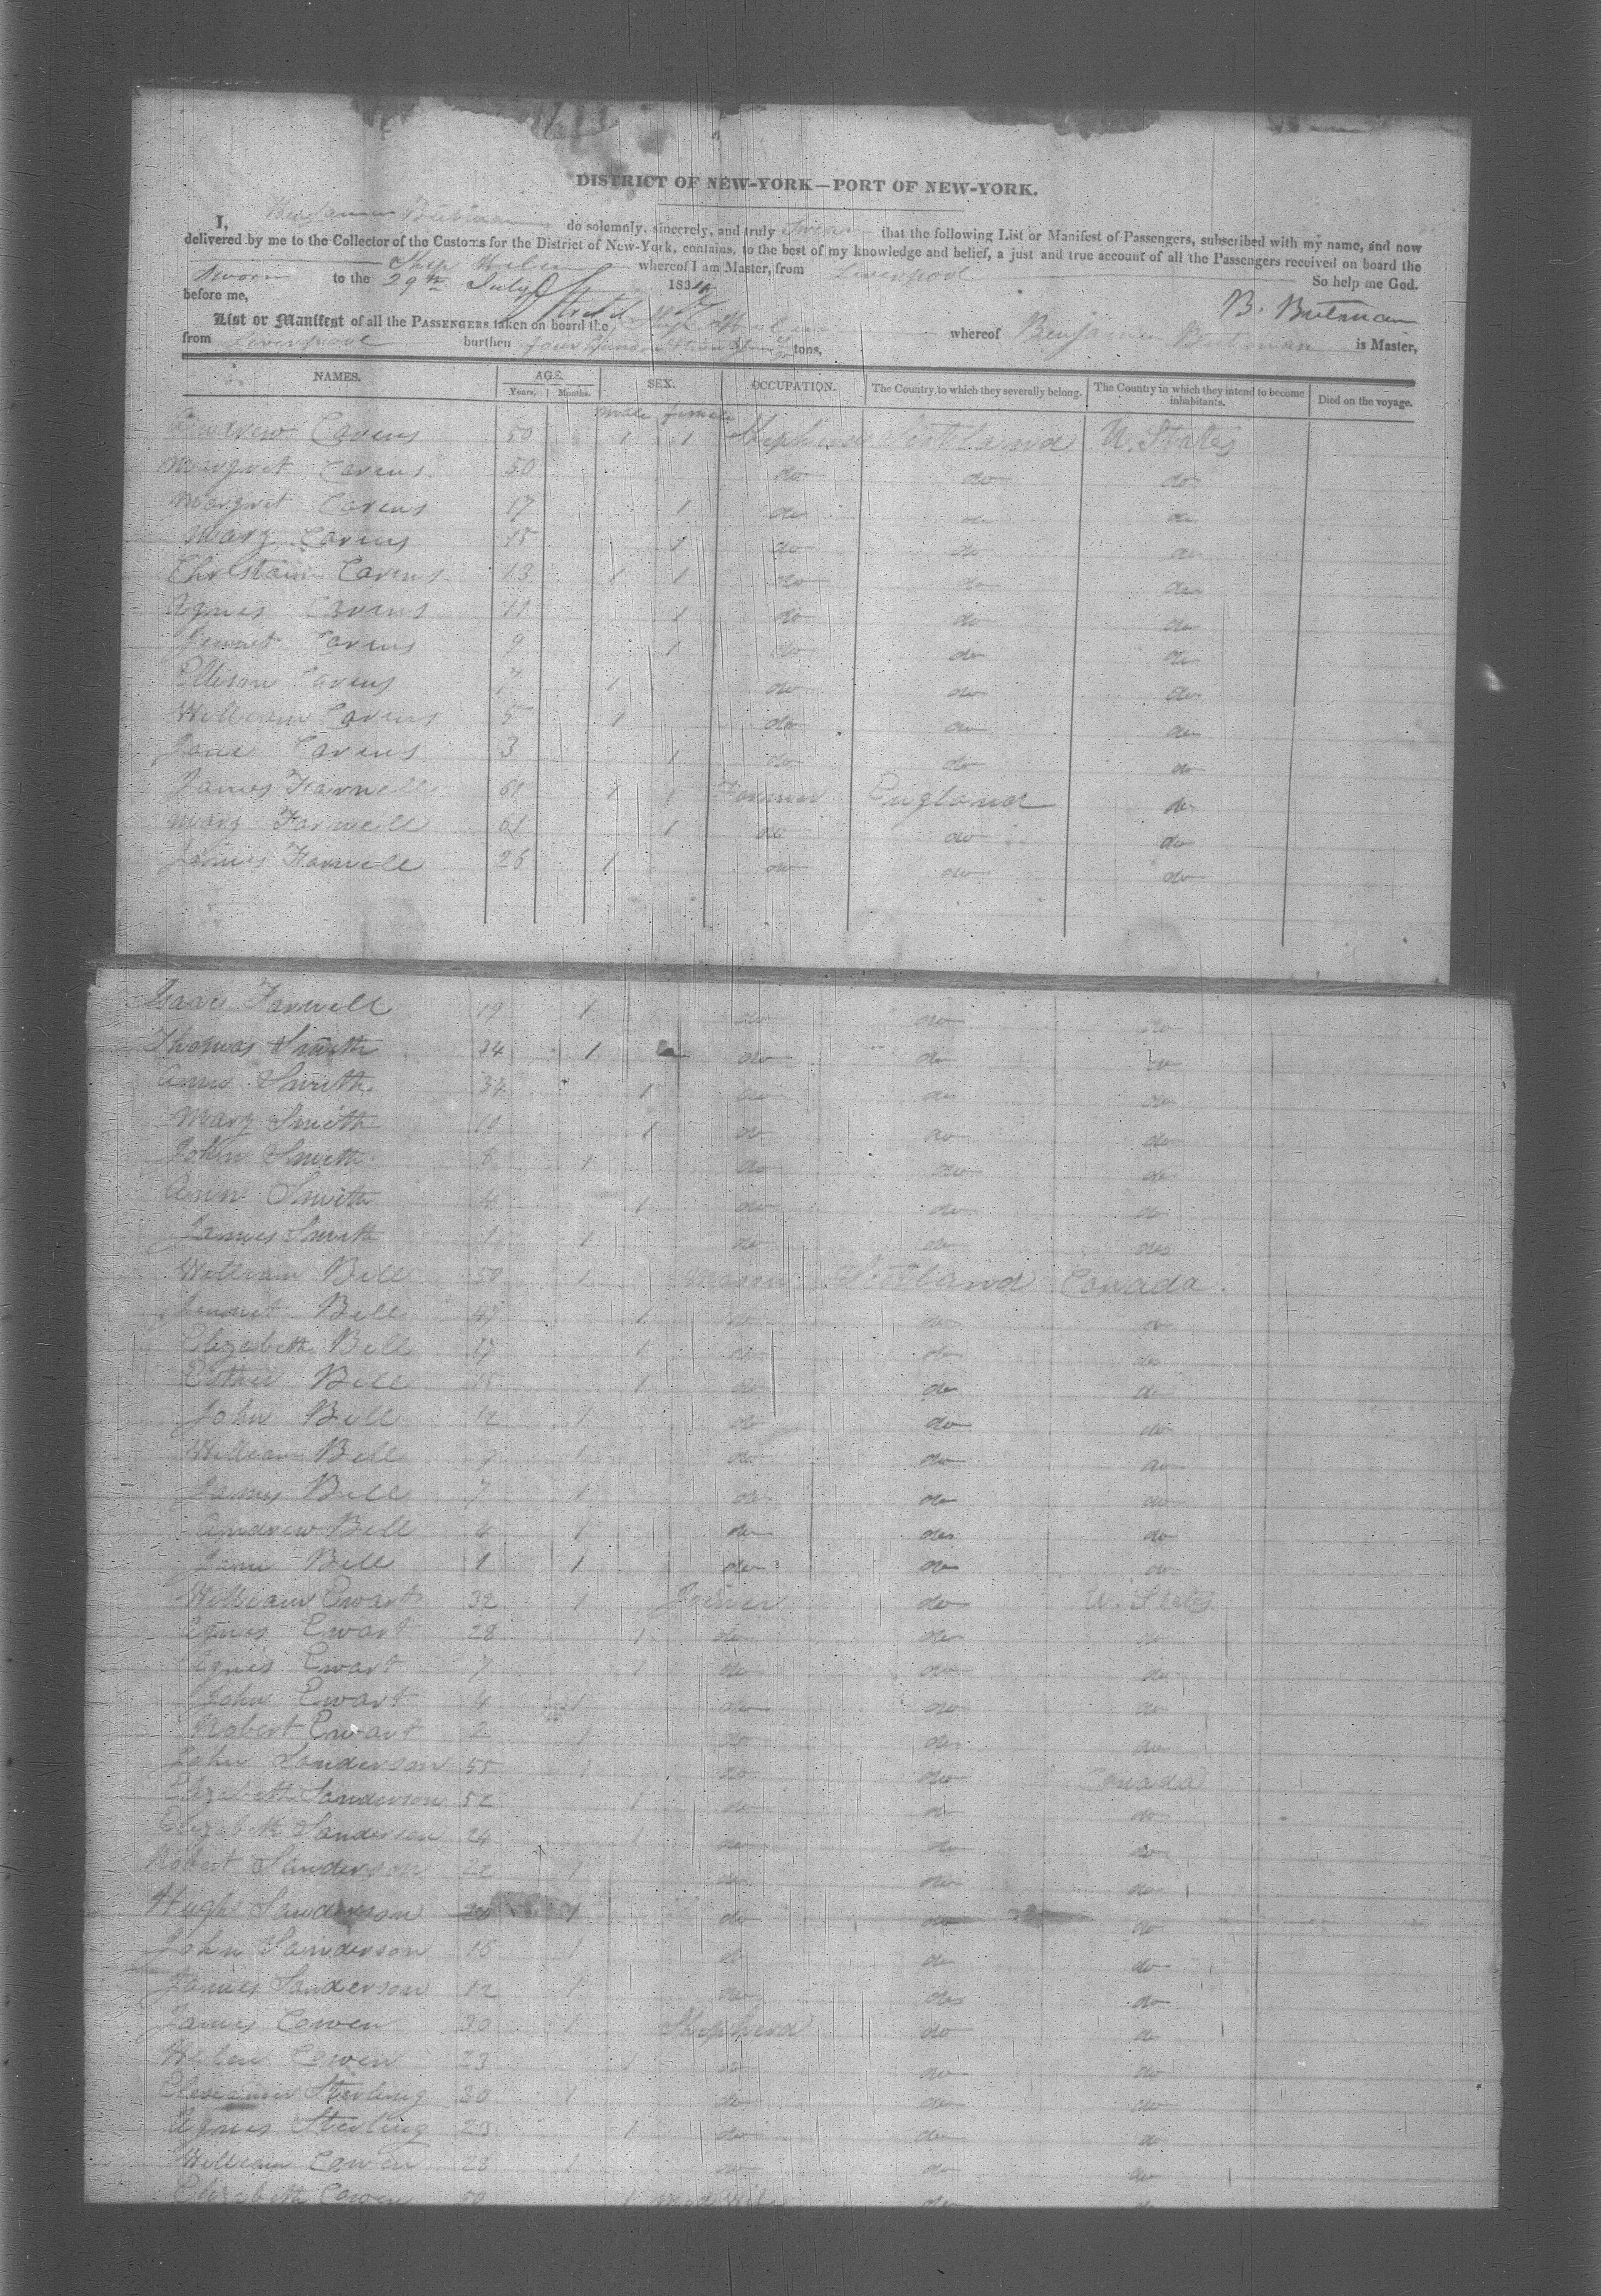 DISTRICT OF NEW-YORK—PORT OF NEW-YORK.
I, Benjamin Butman do solemnly, sincerely, and truly Swear that the following List or Manifest of Passengers, subscribed with my name, and now
delivered by me to the Collector of the Customs for the District of New-York, contains, to the best of my knowledge and belief, a just and true account of all the Passengers received on board the
Ship whereof I am Master, from Liverpool So help me God.
Sworn to the 29th July 1834
before me, B. Butman
List or Manifest of all the PASSENGERS taken on board the Ship whereof Benjamin Butman is Master,
from Liverpool burthen four Hundred tons,
NAMES. AGE. SEX. OCCUPATION. The Country to which they severally belong. The Country in which they intend to become inhabitants. Died on the voyage.
Years. Months. male female
Andrew Cavens 50 1 1 Shepherd Scotland U. States
Margret Cavens 50 do do do
Margret Cavens 17 1 do do do
Mary Cavens 15 1 do do do
Christain Cavens 13 1 1 do do do
Agnes Cavens 11 1 do do do
Jennet Cavens 9 1 do do do
Ellison Cavens 7 1 do do do
William Cavens 5 1 do do do
Jane Cavens 3 1 do do do
James Farnell 61 1 1 Farmer England do
Mary Farnell 61 1 do do do
James Farnell 26 1 do do do
Isaac Farnell 19 1 do do do
Thomas Smith 34 1 do do do
Ann Smith 34 1 do do do
Mary Smith 10 1 do do do
John Smith 8 1 do do do
Ann Smith 4 1 do do do
James Smith 1 1 do do do
William Bell 50 1 Mason Scotland Canada.
Jennet Bell 47 1 do do do
Elizabeth Bell 17 1 do do do
Esther Bell 15 1 do do do
John Bell 12 1 do do do
William Bell 9 1 do do do
James Bell 7 1 do do do
Andrew Bell 4 1 do do do
Jane Bell 1 1 do do do
William Ewart 32 1 Joiner do U. States
Agnes Ewart 28 1 do do do
Agnes Ewart 7 1 do do do
John Ewart 4 1 do do do
Robert Ewart 2 1 do do do
John Sanderson 55 1 do do Canada
Elizabeth Sanderson 52 1 do do do
Elizabeth Sanderson 24 1 do do do
Robert Sanderson 22 1 do do do
Hugh Sanderson 20 1 do do do
John Sanderson 16 1 do do do
James Sanderson 12 1 do do do
James Cowen 30 1 Shepherd do do
Helen Cowen 23 1 do do do
Sterling 30 1 do do do
Agnes Sterling 23 1 do do do
William Cowen 28 1 do do do
Elizabeth Cowen 50 1 do do